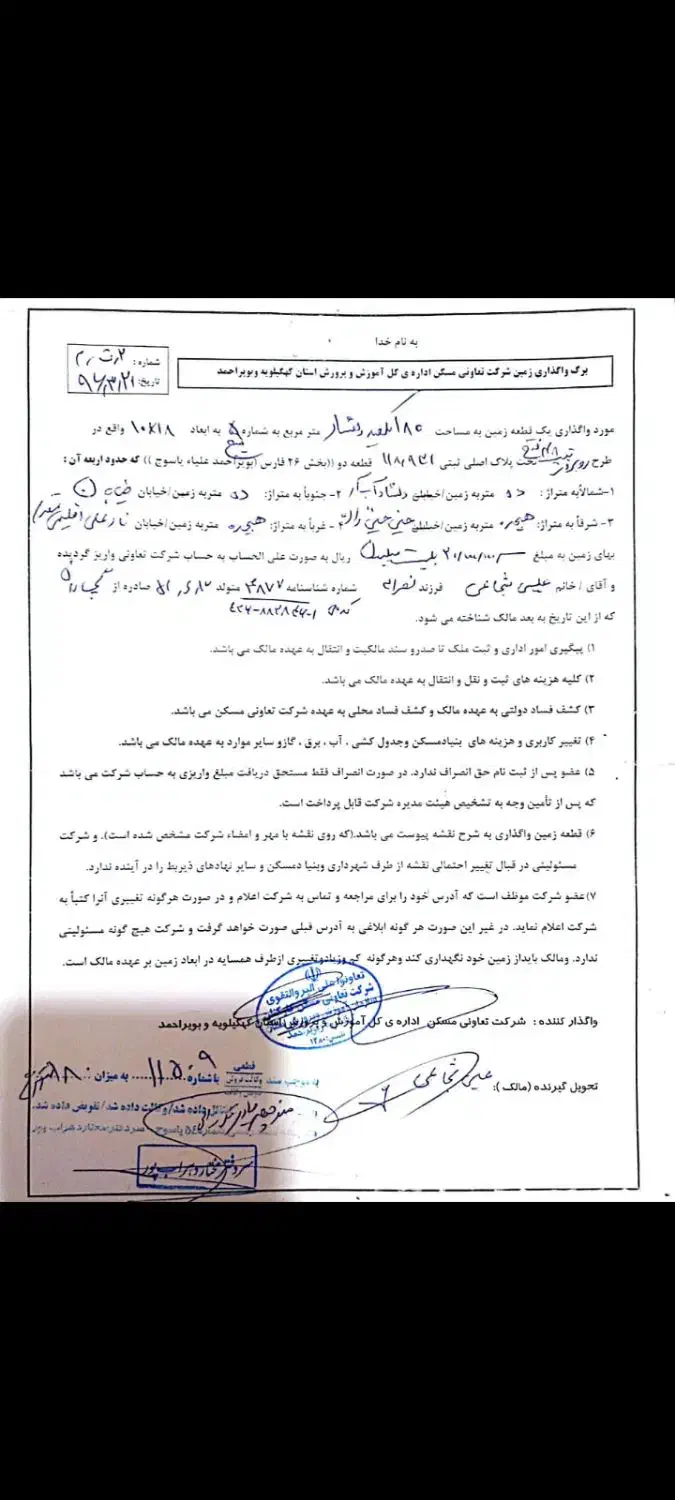 به نام خدا
برگ واگذاری زمین شرکت تعاونی مسکن اداره ی کل آموزش و پرورش استان کهگیلویه وبویراحمد
شماره:
تاریخ: ۹۶/۳/۲۱
مورد واگذاری یک قطعه زمین به مساحت ۱۸۰ یکصد و هشتاد متر مربع به شماره ۵ به ابعاد ۱۰×۱۸ واقع در
طرح تحت پلاک اصلی ثبتی قطعه دو ((بخش ۲۶ فارس (بویراحمد علیاء یاسوج )) که حدود اربعه آن :
۱-شمالاًبه متراژ : ده متربه زمین/خیابان ۲- جنوباً به متراژ: ده متربه زمین/خیابان
۳- شرقاً به متراژ: هیجده متربه زمین/خیابان - غرباً به متراژ: هیجده متربه زمین/خیابان
بهای زمین به مبلغ ۲۰/۰۰۰/۰۰۰ بیست میلیون ریال به صورت علی الحساب به حساب شرکت تعاونی واریز گردیده
و آقای / خانم شجاعی فرزند شماره شناسنامه ۳۸۷۷ متولد صادره از
که از این تاریخ به بعد مالک شناخته می شود.
۱) پیگیری امور اداری و ثبت ملک تا صدرو سند مالکیت و انتقال به عهده مالک می باشد.
۲) کلیه هزینه های ثبت و نقل و انتقال به عهده مالک می باشد.
۳) کشف فساد دولتی به عهده مالک و کشف فساد محلی به عهده شرکت تعاونی مسکن می باشد.
۴) تغییر کاربری و هزینه های بنیادمسکن وجدول کشی ، آب ، برق ، گازو سایر موارد به عهده مالک می باشد.
۵) عضو پس از ثبت نام حق انصراف ندارد. در صورت انصراف فقط مستحق دریافت مبلغ واریزی به حساب شرکت می باشد
که پس از تأمین وجه به تشخیص هیئت مدیره شرکت قابل پرداخت است.
۶) قطعه زمین واگذاری به شرح نقشه پیوست می باشد.(که روی نقشه با مهر و امضاء شرکت مشخص شده است). و شرکت
مسئولیتی در قبال تغییر احتمالی نقشه از طرف شهرداری وبنیا دمسکن و سایر نهادهای ذیربط را در آینده ندارد.
۷)عضو شرکت موظف است که آدرس خود را برای مراجعه و تماس به شرکت اعلام و در صورت هرگونه تغییری آنرا کتباً به
شرکت اعلام نماید. در غیر این صورت هر گونه ابلاغی به آدرس قبلی صورت خواهد گرفت و شرکت هیچ گونه مسئولیتی
ندارد. ومالک بایداز زمین خود نگهداری کند وهرگونه کم وزیادوتغییری ازطرف همسایه در ابعاد زمین بر عهده مالک است.
تعاونوا علی البر والتقوی
شرکت تعاونی مسکن
واگذار کننده : شرکت تعاونی مسکن اداره ی کل آموزش و پرورش استان کهگیلویه و بویراحمد
تحویل گیرنده (مالک ): شجاعی
سند قطعی وکالت فروش باشماره ۱۱۵۰۹ به میزان
داده شد/وکالت داده شد/تفویض داده شد.
یاسوج - سردفتر:مختارد هراب پور
سردفتر مختارد هراب پور